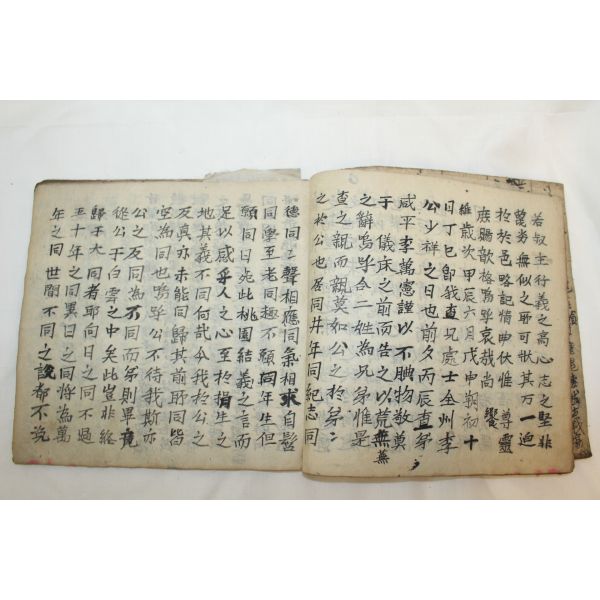 若叙主行義之高心志之堅非
蔑劣無似之所可狀其万一過
於於邑略記情曲伏惟 尊靈
庶賜歆格嗚乎哀哉尚 饗
維歲次甲辰六月戊申朔初十
日丁巳卽我査兄處士全州李
公少祥之日也前夕丙辰査弟
咸平李萬憲謹以不腆物敬奠
于儀床之前而告之以荒蕪
之辭嗚乎合二姓為兄弟惟是
査之親而親莫如公之於弟二
之於公也居同井年同紀志同
德同二聲相應同氣相求自髫
同學至老同趣不願同年生但
願同日死此桃園結義之言而
足以感乎人之心至於損生之
地其義不同何哉今我於公之
反真亦未能同歸其前所同皆
空為同也嗚乎公不待我斯亦
公之反同為不同而弟則畢竟
從公于白雲之中矣此豈非終
歸于大同者耶向日之同不過
五十年之同異日之同將為萬
年之同世間不同之說都不說